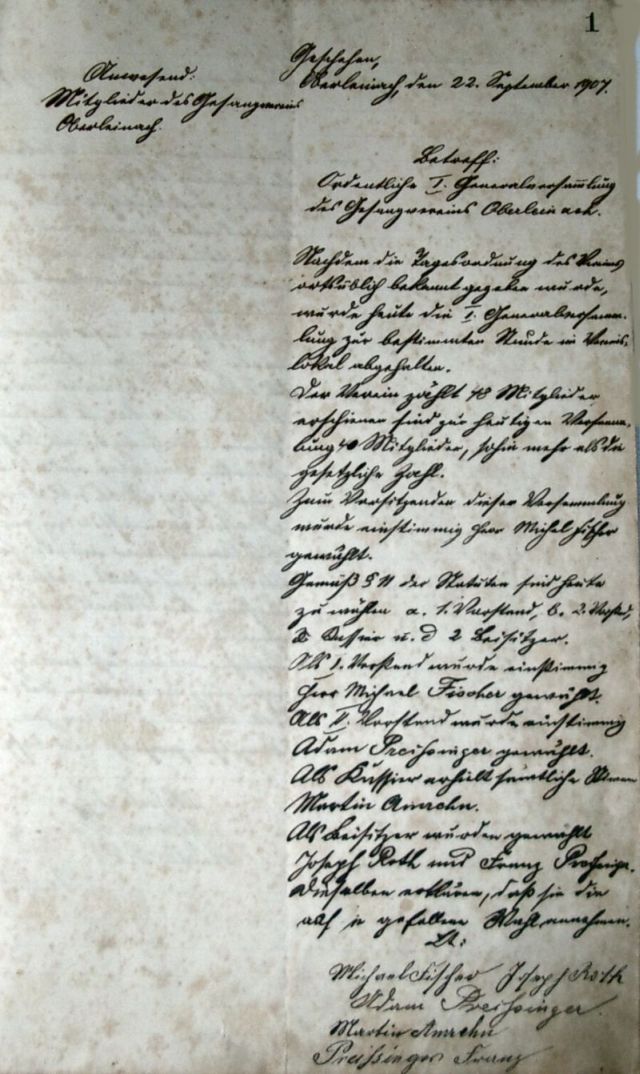 1
Anwesend:
Mitglieder des Gesangvereins
Oberleinach.
Geschehen,
Oberleinach, den 22. September 1907.
Betreff:
Ordentliche I. Generalversammlung
des Gesangvereins Oberleinach.
Nachdem die Tagesordnung des Vereins
ortsüblich bekannt gegeben wurde,
wurde heute die I. Generalversamm-
lung zur bestimmten Stunde im Vereins-
lokal abgehalten.
Der Verein zählt 48 Mitglieder
erschienen sind zur heutigen Versamm-
lung 40 Mitglieder, sohin mehr als die
gesetzliche Zahl.
Zum Vorsitzenden dieser Versammlung
wurde einstimmig Herr Michel Fischer
gewählt.
Gemäß § 11 der Statuten sind heute
zu wählen a. 1. Vorstand, b. 2. Vorstd,
Kassier u. d 2 Beisitzer.
Als I. Vorstand wurde einstimmig
Herr Michael Fischer gewählt.
Als II. Vorstand wurde einstimmig
Adam Preissinger gewählt.
Als Kassier erhielt sämtliche Stimmen
Martin Amrehn.
Als Beisitzer wurden gewählt
Joseph Roth und Franz Preissinger.
Dieselben erklären, daß sie die
auf sie gefallene Wahl annehmen.
Michael Fischer Joseph Roth
Adam Preissinger.
Martin Amrehn
Preissinger Franz